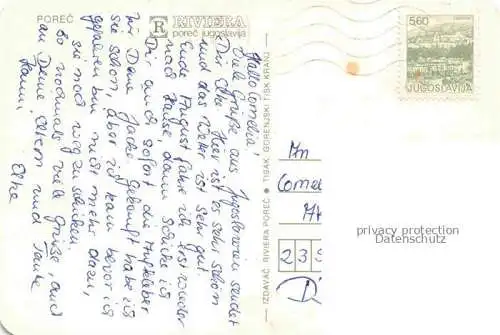 POREČ
R RIVIERA
poreč jugoslavija
Hallo Cornelia,
Viele Grüße aus Jugoslawien sendet
Dir Elke. Hier ist es sehr schön
und das Wetter ist sehr gut.
Ende August fahre ich erst wieder
nach Hause, dann schicke ich
Dir auch sofort die Aufkleber
für Deine Jacke. Gekauft habe ich
sie schon, aber ich kam bevor ich
gefahren bin nicht mehr dazu,
sie noch weg zu schicken.
So nochmals viele Grüße, auch
an Deine Eltern und Tante
Hanni
Elke
IZDAVAČ: RIVIERA POREČ ● TISAK: GORENJSKI TISK KRANJ
5.60
JUGOSLAVIJA
An
Corne
23
privacy protection
Datenschutz